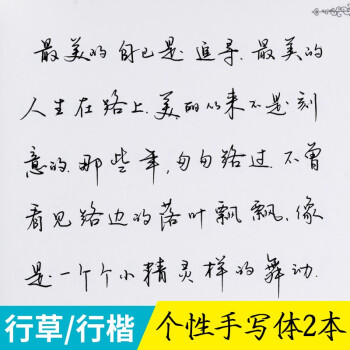 最美的自己是追寻.最美的
人生在路上.美丽从来不是刻
意的.那些年,匆匆路过.不曾
看见路边的落叶飘飘.像
是一个个小精灵样的舞动.
行草/行楷 个性手写体2本